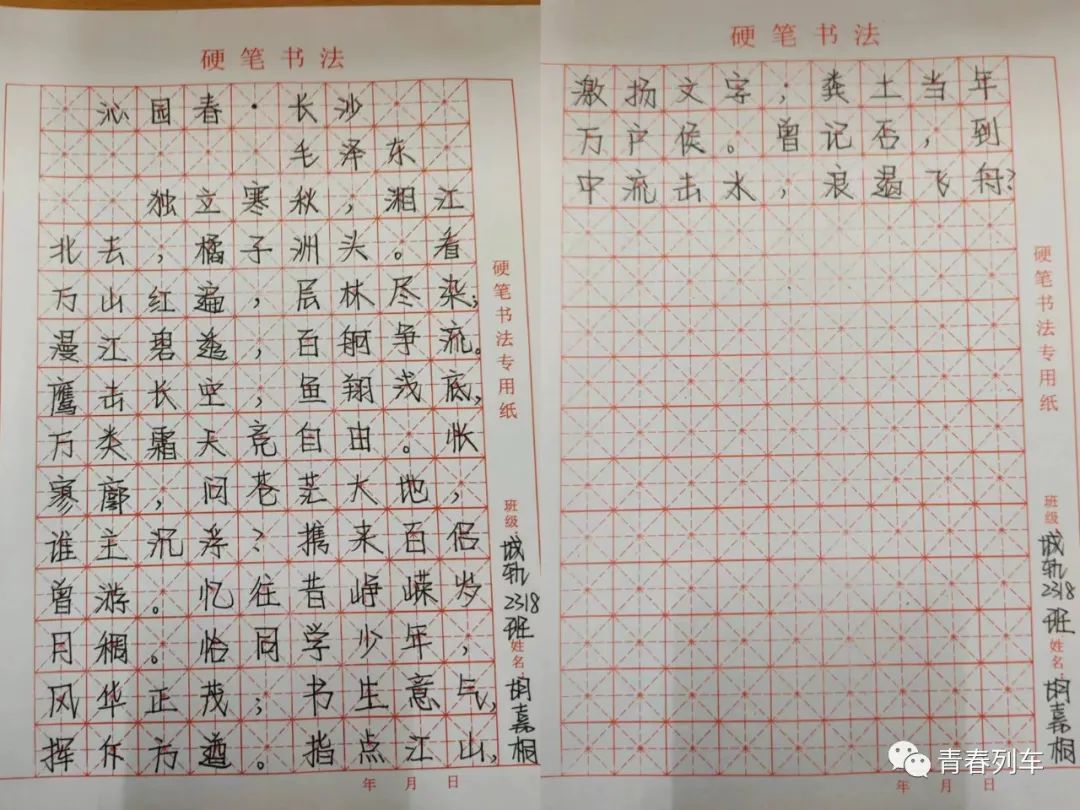 硬笔书法
沁园春·长沙
毛泽东
独立寒秋,湘江
北去,橘子洲头。看
万山红遍,层林尽染;
漫江碧透,百舸争流。
鹰击长空,鱼翔浅底,
万类霜天竞自由。怅
寥廓,问苍茫大地,
谁主沉浮?携来百侣
曾游。忆往昔峥嵘岁
月稠。恰同学少年,
风华正茂;书生意气,
挥斥方遒。指点江山,
硬笔书法专用纸
班级
城轨2318班
姓名
胡嘉桐
年 月 日
硬笔书法
激扬文字;粪土当年
万户侯。曾记否,到
中流击水,浪遏飞舟?
硬笔书法专用纸
班级
城轨2318班
姓名
胡嘉桐
年 月 日
青春列车